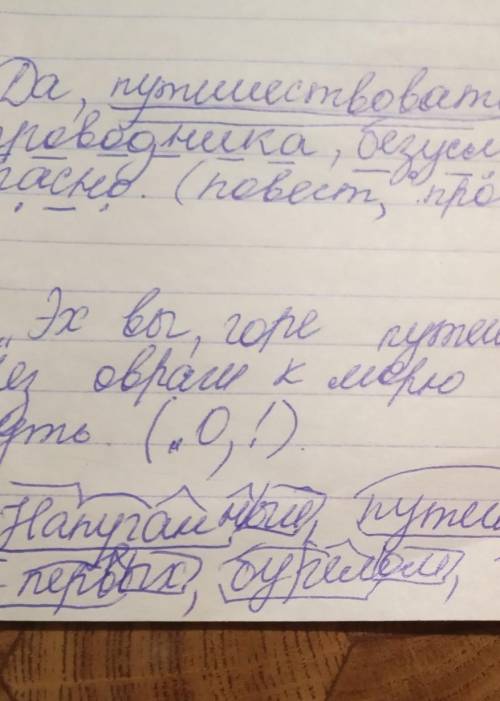 Да, путешествоват
проводника, безусл
пасно. (повест, про
„Эх вы, горе путеш
ез овраги к морю
дть. („О, !).
Напуганный, путеш
-первых, бурелом,